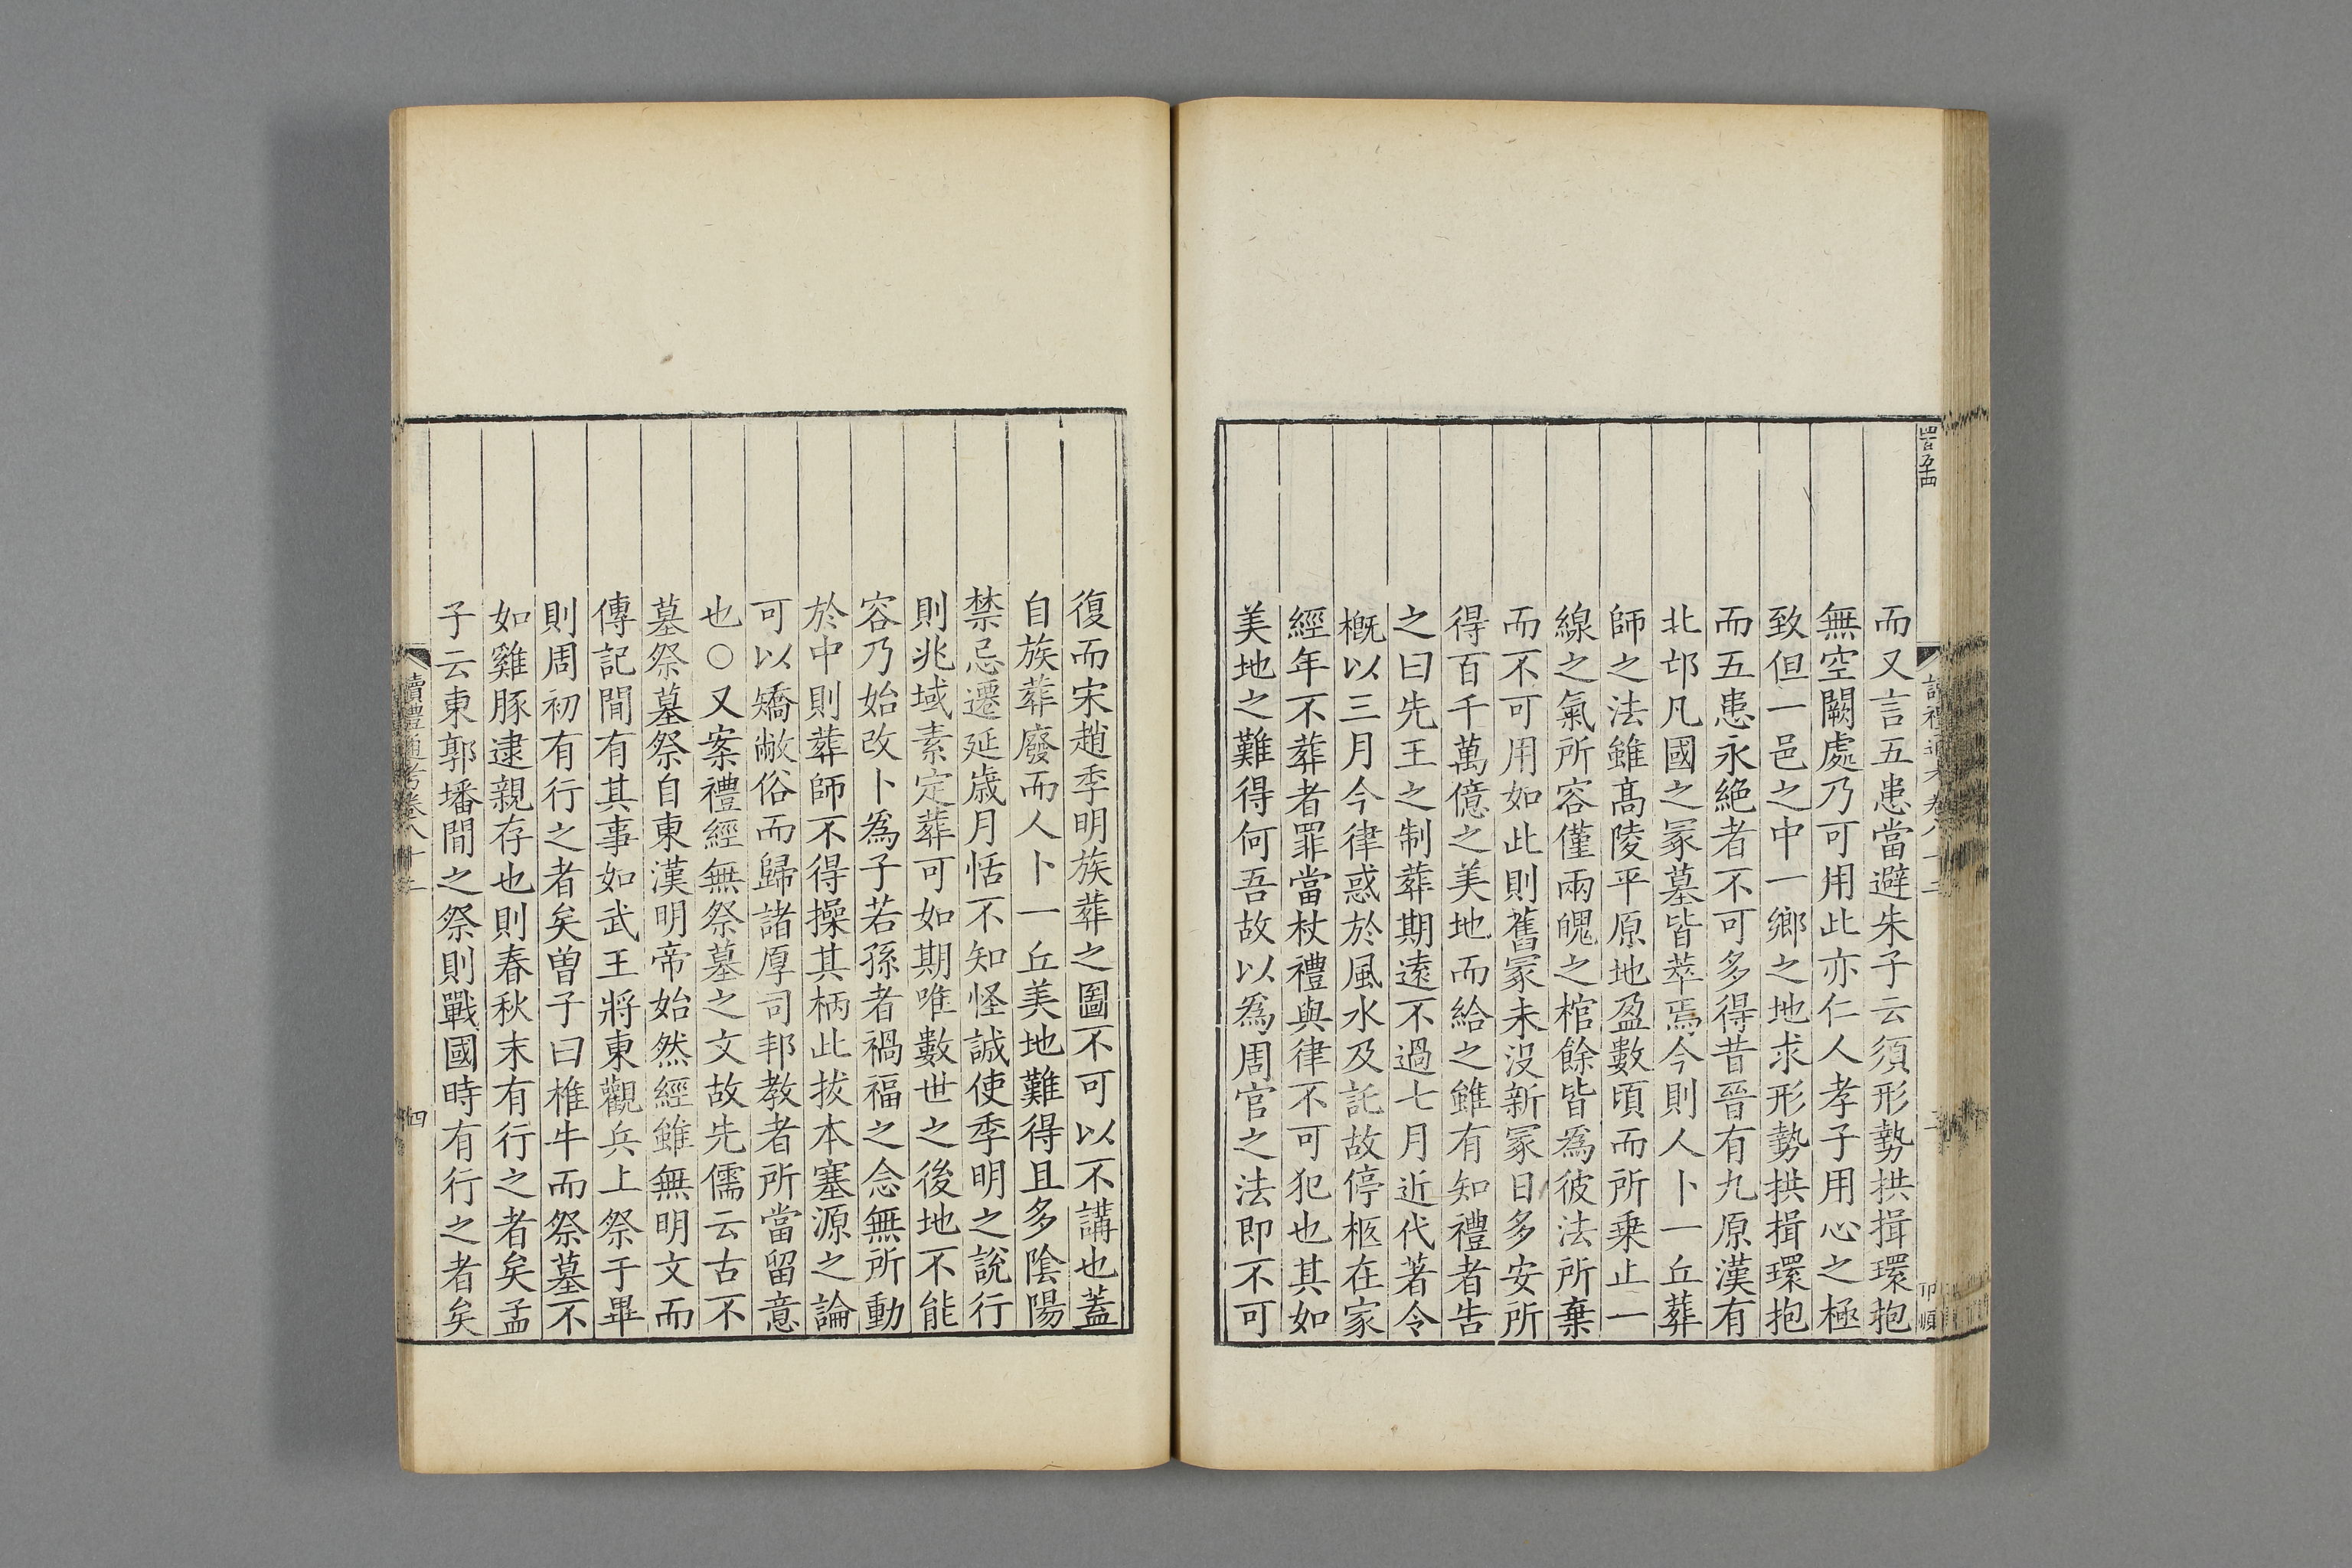 而又言五患當避朱子云須形勢拱揖環抱
無空闕處乃可用此亦仁人孝子用心之極
致但一邑之中一鄉之地求形勢拱揖環抱
而五患永絶者不可多得昔晉有九原漢有
北邙凡國之冢墓皆萃焉今則人卜一丘葬
師之法雖髙陵平原地盈數頃而所乗止一
線之氣所容僅兩魄之棺餘皆爲彼法所棄
而不可用如此則舊冡未没新冡日多安所
得百千萬億之美地而給之雖有知禮者告
之曰先王之制葬期逺不過七月近代著令
槪以三月今律惑於風水及託故停柩在家
經年不葬者罪當杖禮與律不可犯也其如
美地之難得何吾故以爲周官之法即不可
復而宋趙季明族葬之圖不可以不講也蓋
自族葬廢而人卜一丘美地難得且多陰陽
禁忌遷延歲月恬不知怪誠使季明之說行
則兆域素定葬可如期唯數世之後地不能
容乃始改卜爲子若孫者禍福之念無所動
於中則葬師不得操其柄此拔本塞源之論
可以矯敝俗而歸諸厚司邦教者所當留意
也○又案禮經無祭墓之文故先儒云古不
墓祭墓祭自東漢明帝始然經雖無明文而
傳記間有其事如武王將東觀兵上祭于畢
則周初有行之者矣曽子曰椎牛而祭墓不
如雞豚逮親存也則春秋末有行之者矣孟
子云東郭墦間之祭則戰國時有行之者矣
讀禮通考卷八十二
四